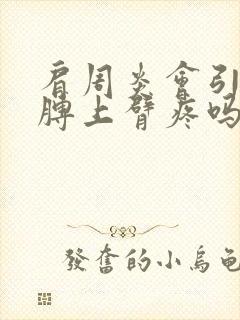 肩周炎會引
脾上臂疼吗
發奮的小烏龜